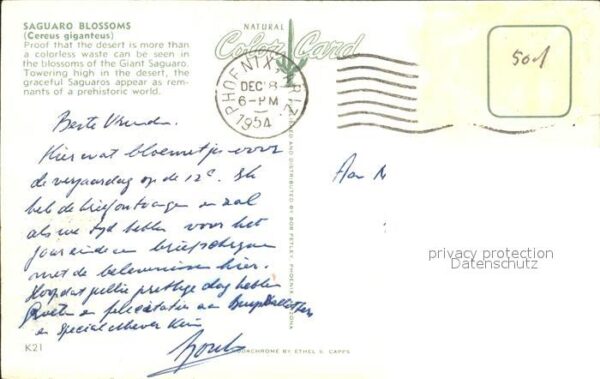 SAGUARO BLOSSOMS
(Cereus giganteus)
Proof that the desert is more than
a colorless waste can be seen in
the blossoms of the Giant Saguaro.
Towering high in the desert, the
graceful Saguaros appear as rem-
nants of a prehistoric world.
NATURAL
Color Card
PHOENIX, ARIZ.
DEC 8
6-PM
1954
501
Beste Vrienden.
Hier wat bloemetjes voor
de verjaardag op de 12e. Ik
heb de brief ontvangen en zal
als we tijd hebben voor het
jaareinde een brief
met de belevenissen hier.
Hoop dat jullie prettige dag hebben
Groeten en felicitaties aan
en speciaal
Aan
privacy protection
Datenschutz
K21
KODACHROME BY ETHEL S. CAPPS
AND DISTRIBUTED BY BOB PETLEY, PHOENIX, ARIZONA